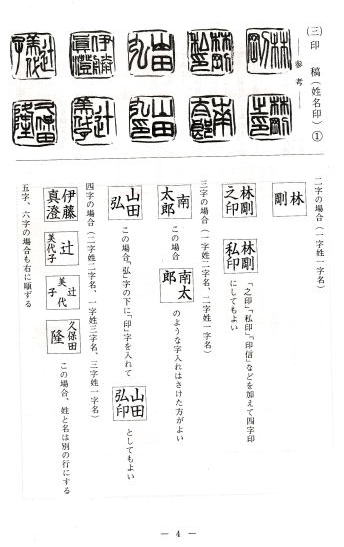 (三)印 稿(姓名印)①
―参考―
二字の場合(一字姓一字名)
林剛
林剛之印
林剛私印
「之印」「私印」「印信」などを加えて四字印にしてもよい
三字の場合(一字姓二字名、二字姓一字名)
南太郎
この場合
南太郎
のような字入れはさけた方がよい
山田弘
この場合「弘」字の下に「印」字を入れて
山田弘印
としてもよい
四字の場合(二字姓二字名、一字姓三字名、三字姓一字名)
伊藤真澄
辻美代子
辻美代子
久保田隆
この場合、姓と名は別の行にする
五字、六字の場合も右に順ずる
— 4 —